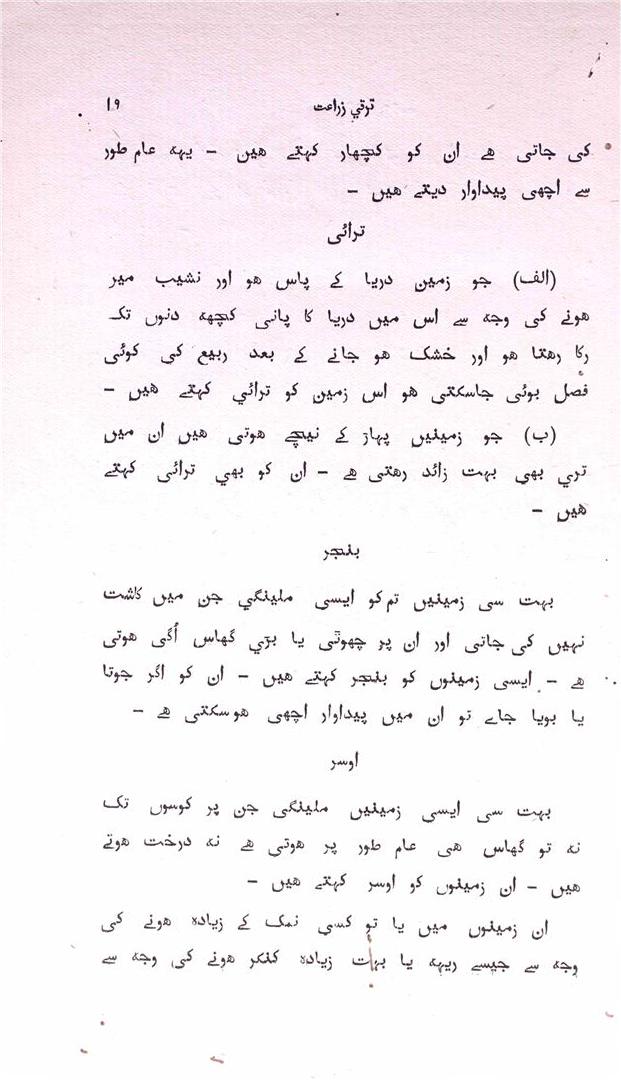 ترقي زراعت ۱۹
کی جاتی ھے ان کو کچھار کہتے ھیں - یہہ عام طور
سے اچھی پیداوار دیتے ھیں -
ترائی
(الف) جو زمین دریا کے پاس ھو اور نشیب میر
ھونے کی وجہ سے اس میں دریا کا پانی کچھہ دنوں تک
رکا رھتا ھو اور خشک ھو جانے کے بعد ربیع کی کوئی
فصل بوئی جاسکتی ھو اس زمین کو ترائي کہتے ھیں -
(ب) جو زمینیں پہاڑ کے نیچے ھوتی ھیں ان میں
تري بھی بہت زائد رھتی ھے - ان کو بھي ترائی کہتے
ھیں -
بنجر
بہت سی زمینیں تم کو ایسی ملینگي جن میں کاشت
نہیں کی جاتی اور ان پر چھوٹی یا بڑي گھاس اُگی ھوتی
ھے - ایسی زمینوں کو بنجر کہتے ھیں - ان کو اگر جوتا
یا بویا جاے تو ان میں پیداوار اچھی ھوسکتی ھے -
اوسر
بہت سی ایسی زمینیں ملینگی جن پر کوسوں تک
نہ تو گھاس ھی عام طور پر ھوتی ھے نہ درخت ھوتے
ھیں - ان زمینوں کو اوسر کہتے ھیں -
ان زمینوں میں یا تو کسی نمک کے زیادہ ھونے کی
وجہ سے جیسے ریہہ یا بہت زیادہ کنکر ھونے کی وجہ سے